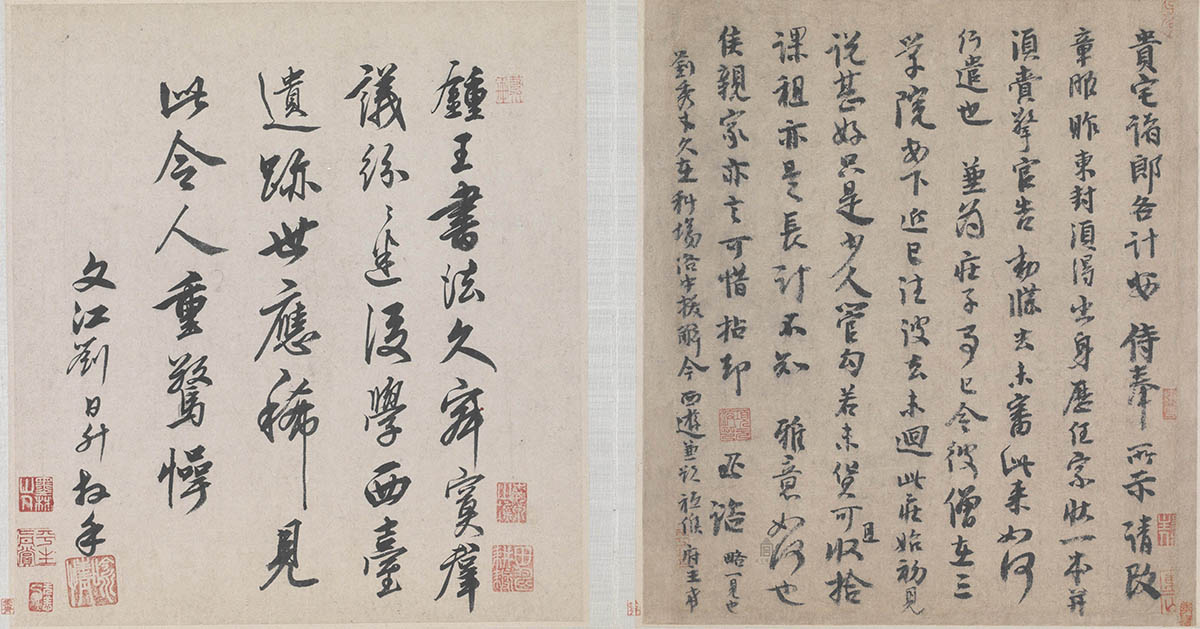 貴宅諸郎各計安侍奉所示請改
章服昨東封須得出身歷任家狀一本并
須賫擎官告勑牒去未審此來如何
行遣也兼為莊子事已令彼僧在三
学院安下近已往彼去未迴此莊始初見
说甚好只是少人管勾若未貨可且收拾
課租亦是長計不知雅意如何也
侯親家亦言可惜拈却
丞諮略一見也
劉秀才久在科場洛中拔解今西遊兼欲祗候府主希
鍾王書法久寂寞羣
議紛〻迷後學西臺
遺跡世應稀見
此令人重驚愕
文江劉日升拜手